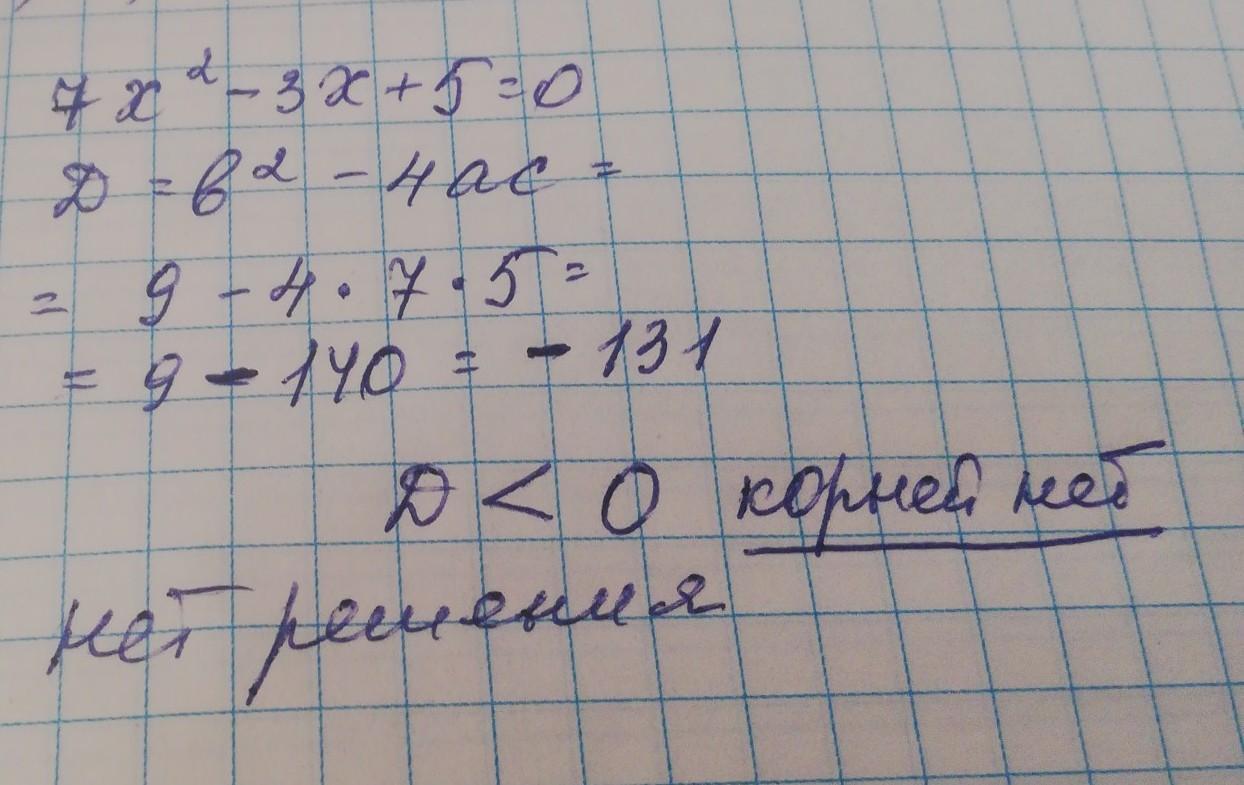 7x² - 3x + 5 = 0
D = b² - 4ac =
= 9 - 4 · 7 · 5 =
= 9 - 140 = - 131
D < 0 корней нет
нет решения